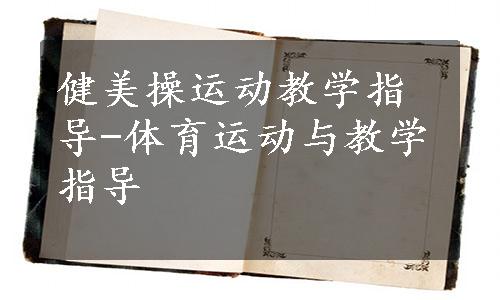 健美操运动教学指
导-体育运动与教学
指导